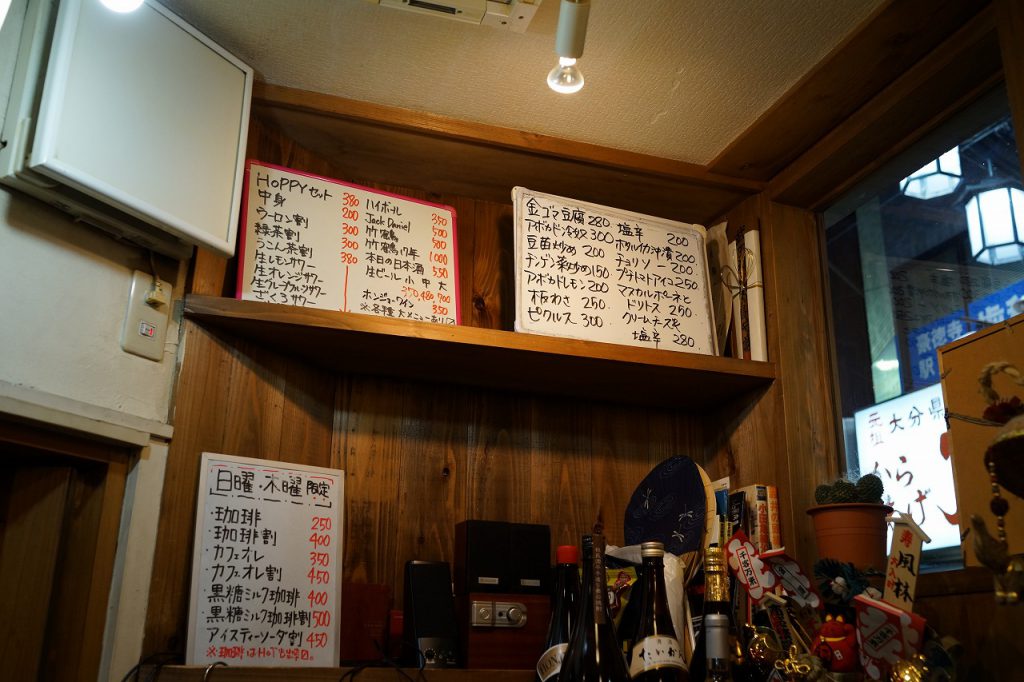 HOPPYセット 380
中身 200
ウーロン割 300
緑茶割 300
うこん茶割 380
生レモンサワー
生オレンジサワー
生グレープフルーツサワー
ざくろサワー
ハイボール 350
Jack Daniel 500
竹鶴 500
竹鶴17年 1000
本日の日本酒 550
生ビール 小 中 大
350,480,700
350
金ゴマ豆腐 280
アボカド 300
豆苗炒め 200
チンゲン菜炒め 150
アボカドレモン 200
板わさ 250
ピクルス 300
塩辛 200
ホタルイカ沖漬 200
チョリソー 200
プチトマトアイコ 250
マスカルポーネと
ドリトス 250
クリームチーズと
塩辛 280
日曜・木曜 限定
・珈琲 250
・珈琲割 400
・カフェオレ 350
・カフェオレ割 450
・黒糖ミルク珈琲 400
・黒糖ミルク珈琲割 500
アイスティーソーダ割 450
※珈琲はHOTも出来〼
元祖
大分県
から
げ
風林
千客万来